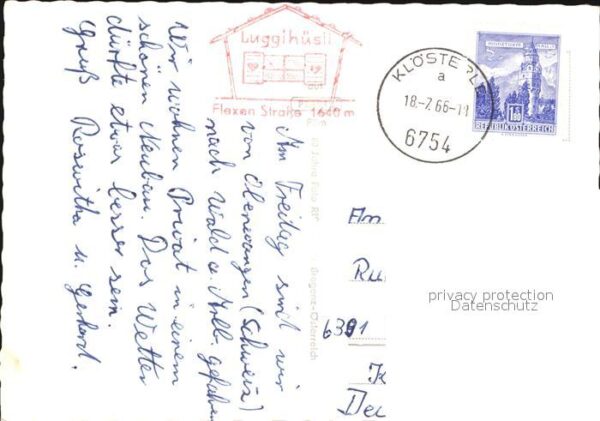 Luggihüsli
Flexen Straße 1640 m
KLÖSTERLE
a
18.-7.66-11
6754
MÜNZTURM HALL
S
1.80
REPUBLIK ÖSTERREICH
Am Freitag sind wir
von Oberwangen (Schweiz)
nach Wald a. Arlb. gefahren
Wir wohnen Privat in einem
schönen Neubau. Das Wetter
dürfte etwas besser sein.
Gruß Roswitha u. Gerhard.
Bregenz-Österreich
Am
Ru
6301
K
De
privacy protection
Datenschutz